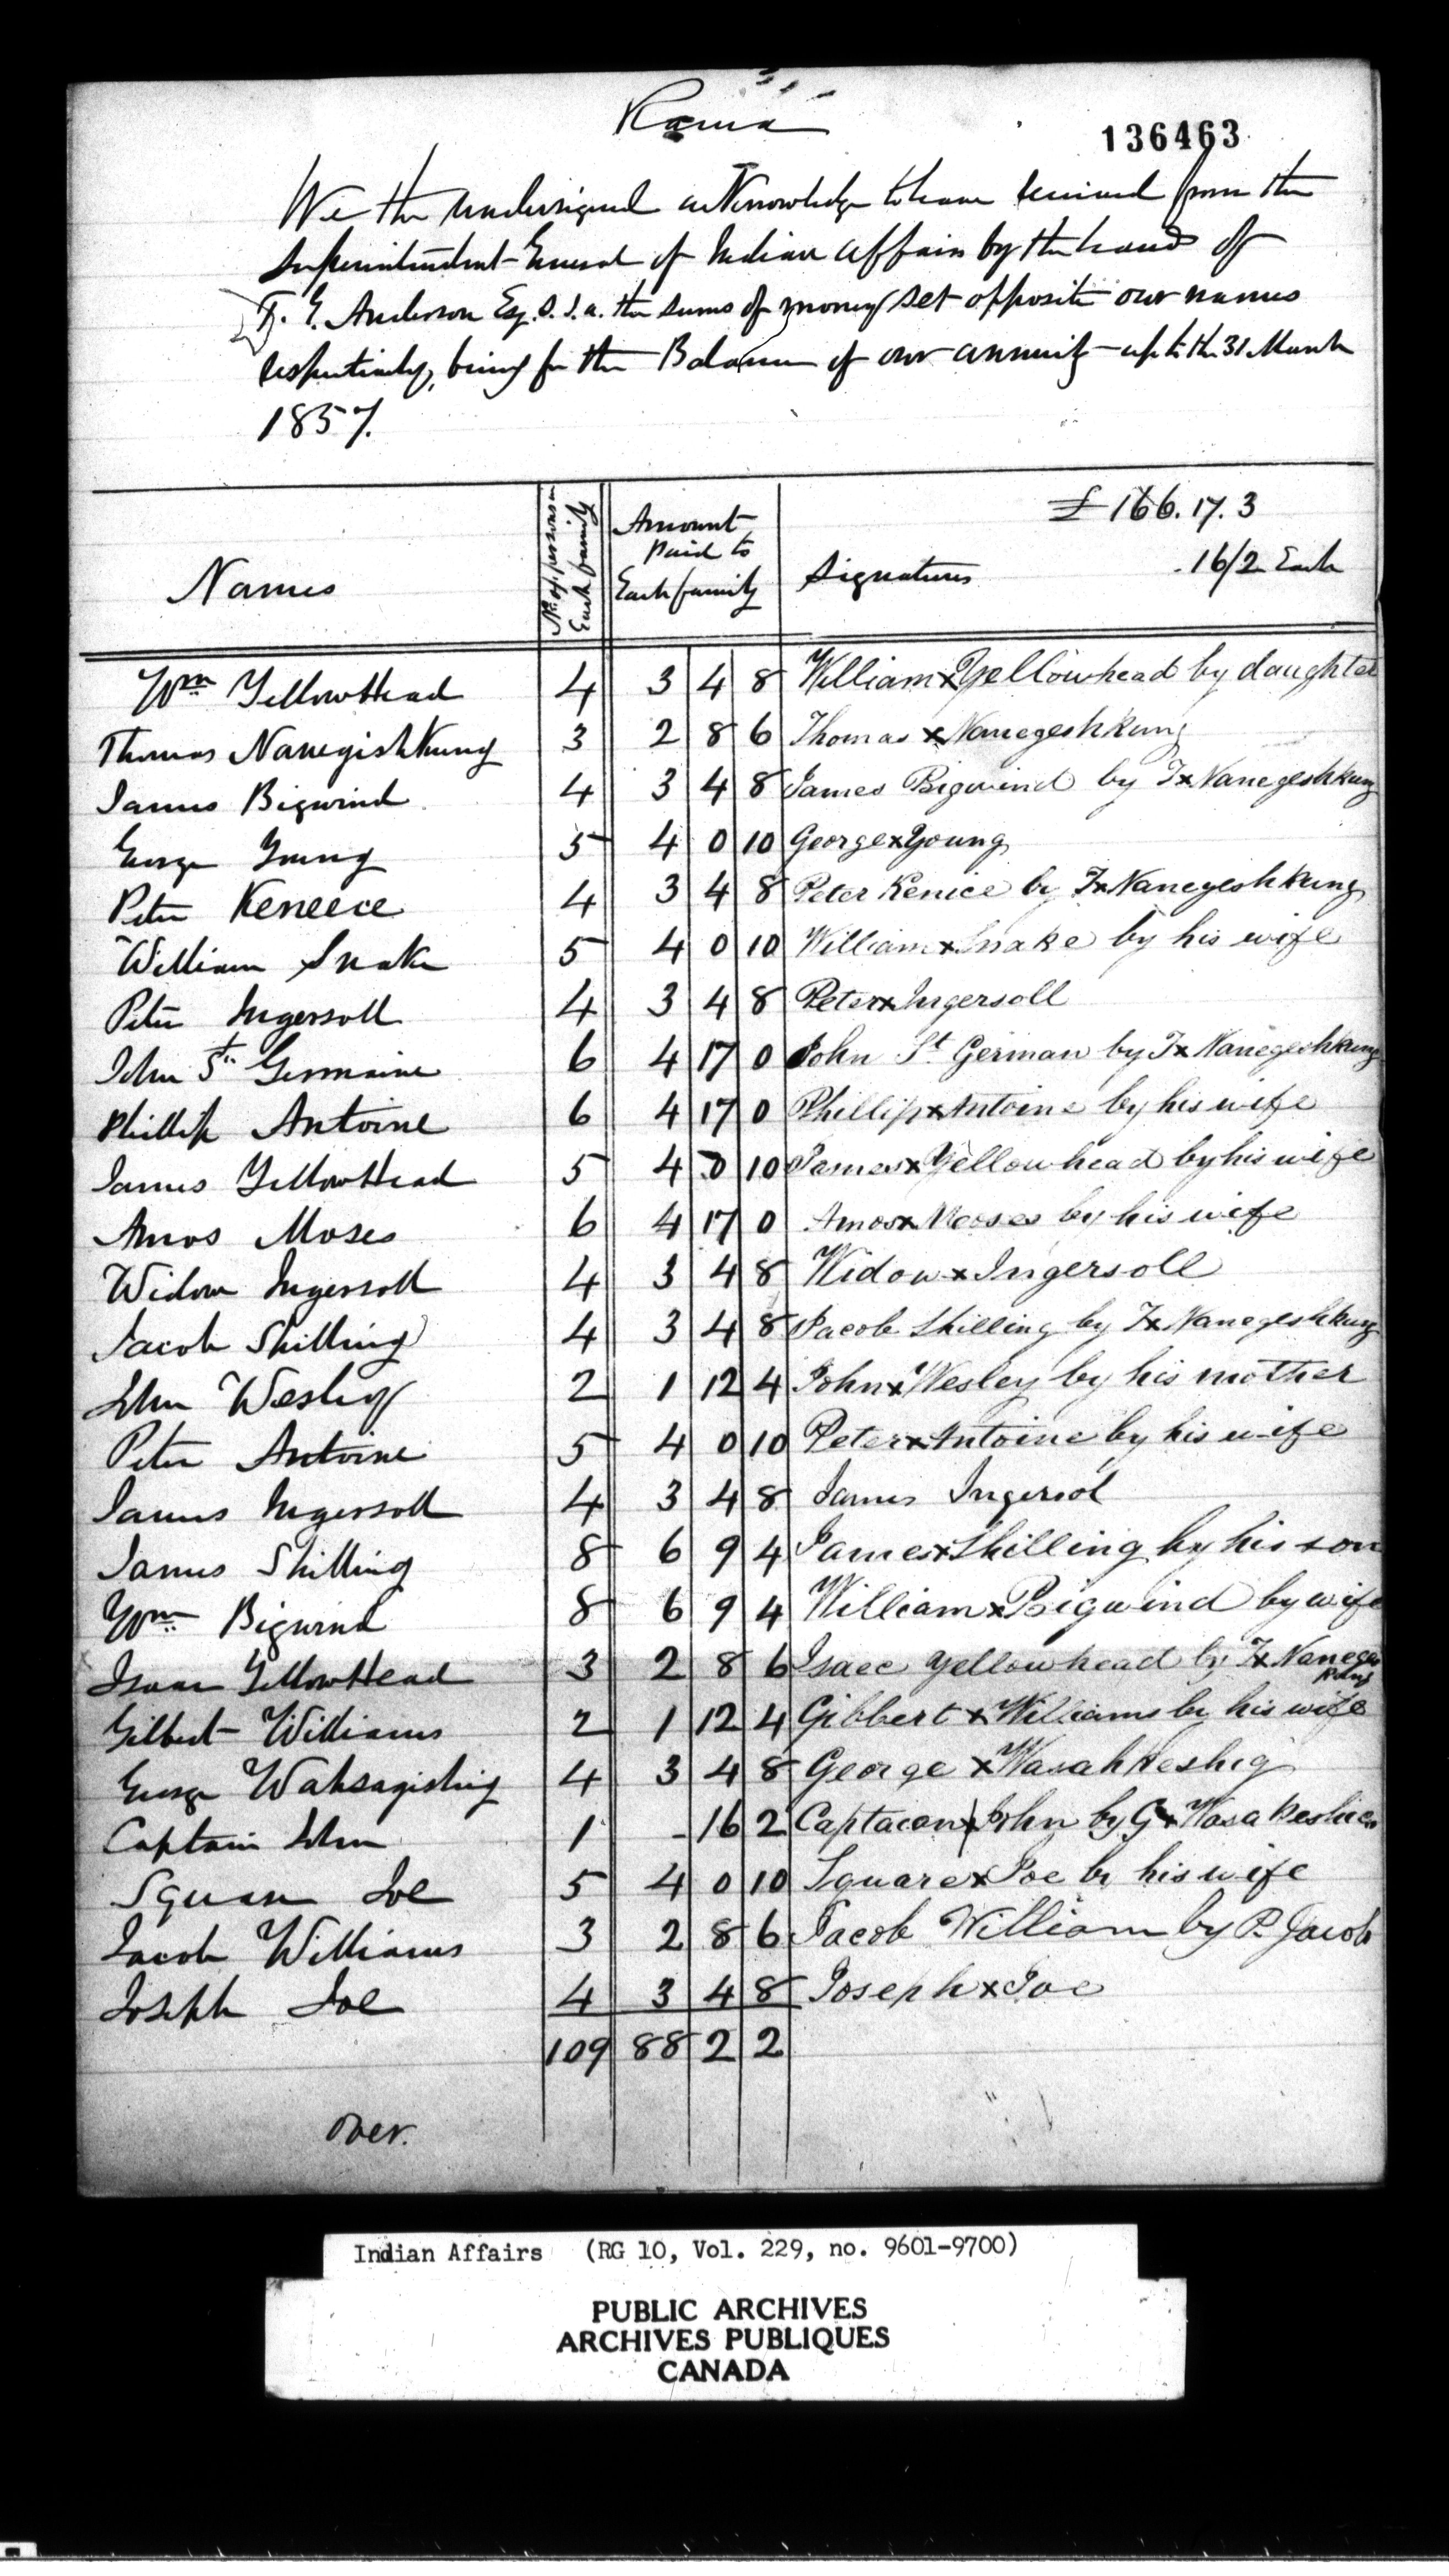 Rama
136463
We the undersigned acknowledge to have received from the
Superintendent General of Indian Affairs by the hands of
T. G. Anderson Esq. S.I.A. the sums of money set opposite our names
respectively, being for the Balance of our annuity up to the 31 March
1857.
£166.17.3
Names No. of persons in Each family Amount Paid to Each family Signatures 16/2 Each
Wm YellowHead 4 3 4 8 William x Yellowhead by daughter
Thomas Nanegishkung 3 2 8 6 Thomas x Nanegeshkung
James Bigwind 4 3 4 8 James Bigwind by T x Nanegeshkung
George Young 5 4 0 10 George x Young
Peter Keneece 4 3 4 8 Peter Kenice by T x Nanegeshkung
William Snake 5 4 0 10 William x Snake by his wife
Peter Ingersoll 4 3 4 8 Peter x Ingersoll
John St. Germaine 6 4 17 0 John St German by T x Nanegeshkung
Phillip Antoine 6 4 17 0 Phillip x Antoine by his wife
James YellowHead 5 4 0 10 James x Yellowhead by his wife
Amos Moses 6 4 17 0 Amos x Mooses by his wife
Widow Ingersoll 4 3 4 8 Widow x Ingersoll
Jacob Shilling 4 3 4 8 Jacob Shilling by T x Nanegeshkung
John Wesley 2 1 12 4 John x Wesley by his mother
Peter Antoine 5 4 0 10 Peter x Antoine by his wife
James Ingersoll 4 3 4 8 James Ingersol
James Shilling 8 6 9 4 James x Shilling by his son
Wm Bigwind 8 6 9 4 William x Bigwind by wife
Isaac YellowHead 3 2 8 6 Isaec Yellowhead by T x Nanegesh
kung
Gilbert Williams 2 1 12 4 Gibbert x Williams by his wife
George Wahsagishig 4 3 4 8 George x Wasahkeshig
Captain John 1 - 16 2 Captacon x John by G x Wasakeshie
Square Joe 5 4 0 10 Square x Joe by his wife
Jacob Williams 3 2 8 6 Jacob William by P. Jacob
Joseph Joe 4 3 4 8 Joseph x Joe
109 88 2 2
over.
Indian Affairs (RG 10, Vol. 229, no. 9601-9700)
PUBLIC ARCHIVES
ARCHIVES PUBLIQUES
CANADA